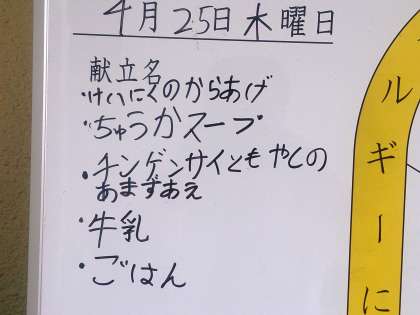 4月25日木曜日
献立名
・けいにくのからあげ
・ちゅうかスープ
・チンゲンサイともやしの
あまずあえ
・牛乳
・ごはん
ルギーに